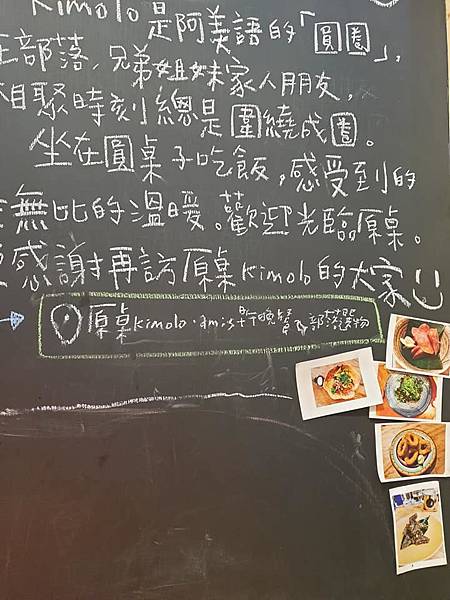 Kimolo是阿美語的「圓圈」,
在部落,兄弟姐妹家人朋友,
相聚時刻總是圍繞成圈。
坐在圓桌子吃飯,感受到的
無比的溫暖。歡迎光臨原桌。
感謝再訪原桌Kimolo的大家
原桌kimolo·amis午晚餐&部落選物